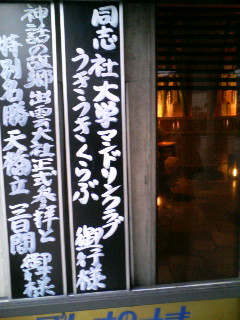 同志社大学マンドリンクラブ
うきうきくらぶ 御行様
神話の故郷 出雲大社正式参拝と
特別名勝 天橋立 三日間 御一行様